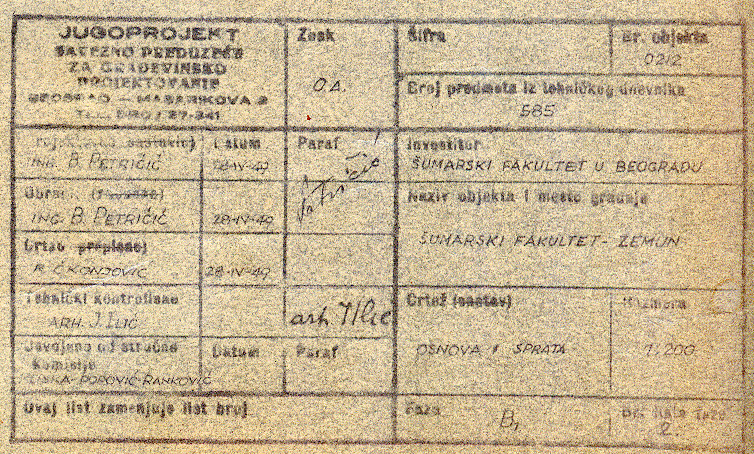 JUGOPROJEKT
SAVEZNO PREDUZEĆE
ZA GRAĐEVINSKO
PROJEKTOVANJE
BEOGRAD — MASARIKOVA 2
TEL. BROJ 27-341
Znak
O.A.
Šifra
Br. objekta
0212
Broj predmeta iz tehničkog dnevnika
585
Datum
Paraf
ING. B. PETRIČIĆ
28-IV-49
Investitor
ŠUMARSKI FAKULTET U BEOGRADU
ING. B. PETRIČIĆ
28-IV-49
Naziv objekta i mesto gradnje
ŠUMARSKI FAKULTET - ZEMUN
Crtao (prepisao)
28-IV-49
Tehnički kontrolisao
ARH. J. ILIĆ
arh. Ilić
Crtež (sastav)
OSNOVA I SPRATA
Razmera
1:200
Usvojeno od stručne
komisije
Datum
Paraf
POPOVIĆ-RANKOVIĆ
Ovaj list zamenjuje list broj
Faza
B₁
2.